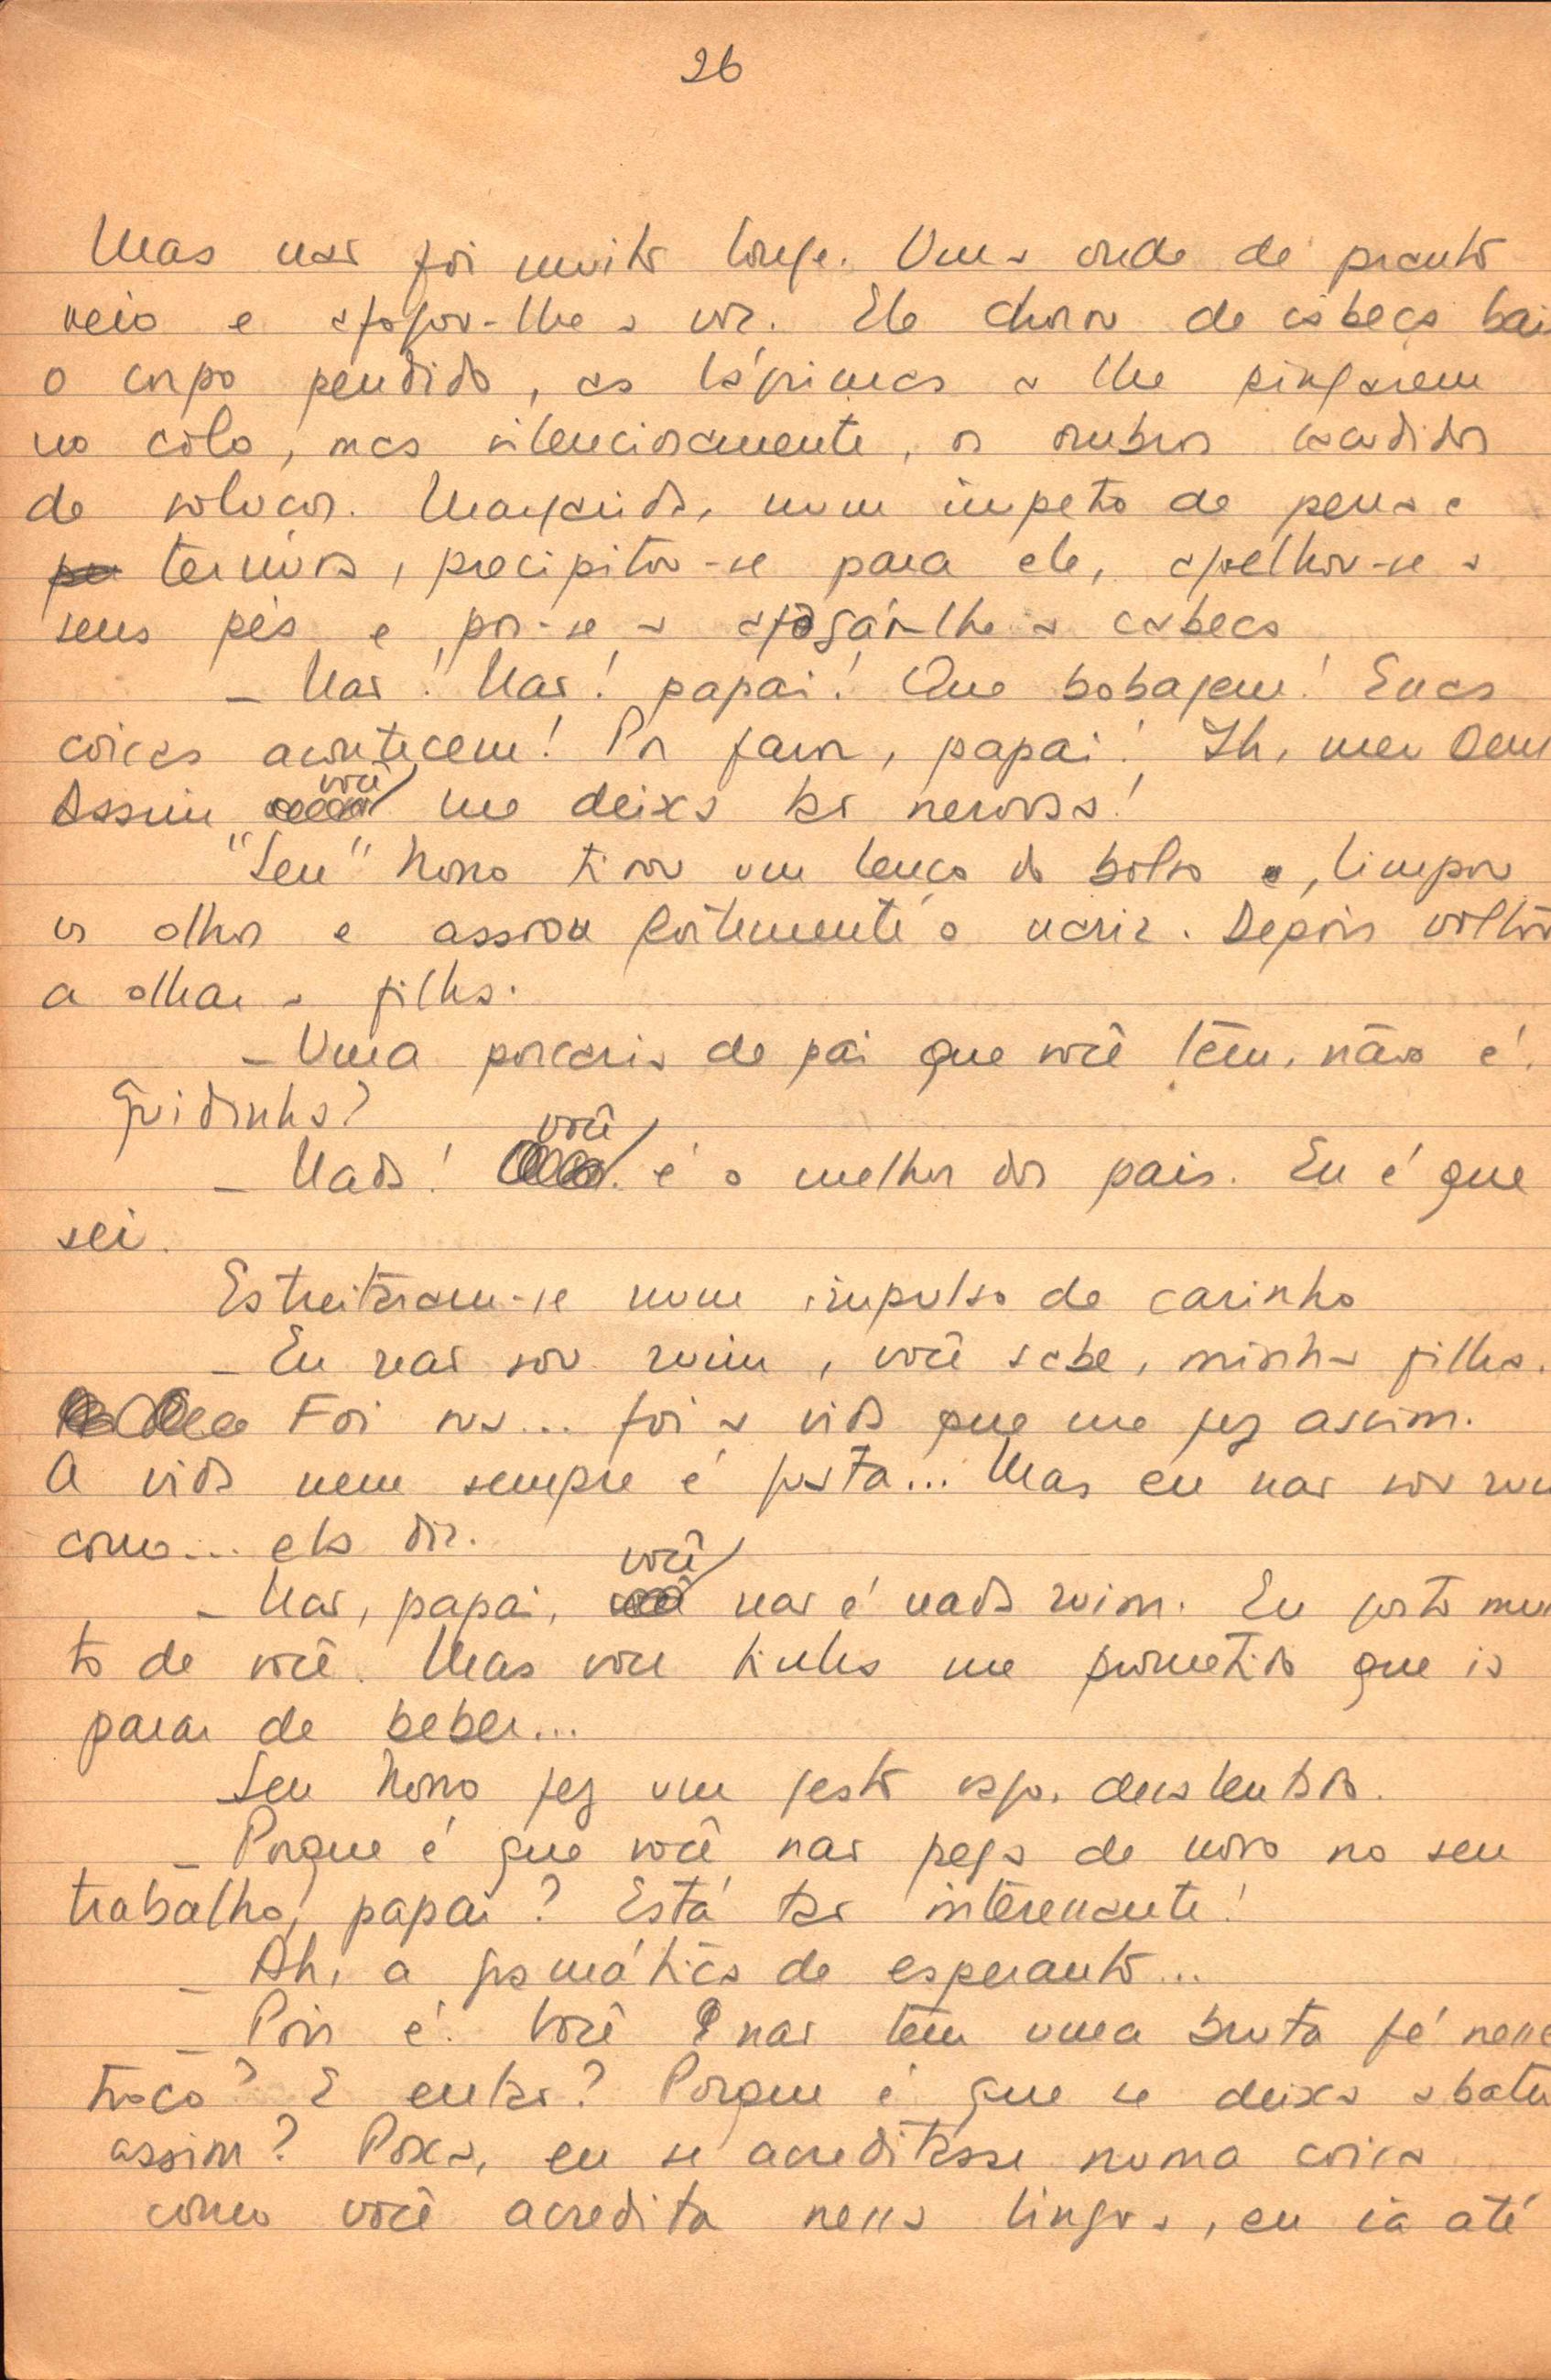 26
Mas não foi muito longe. Uma onda de pranto
veio e afogou-lhe a voz. Ele chorou de cabeça bai
o corpo pendido, as lágrimas a lhe pingarem
no colo, mas silenciosamente, os ombros sacudidos
de soluços. Margarida, num ímpeto de pena e
ternura, precipitou-se para ele, ajoelhou-se a
seus pés e pôs-se a afagár-lhe a cabeça
- Não! Não! papai! Que bobajem! Essas
coisas acontecem! Por favor, papai! Ih, meu Deus
Assim você me deixa tão nervosa!
"Seu" Nono tirou um lenço do bolso, limpou
os olhos e assoou fortemente o nariz. Depois voltou
a olhar a filha.
- Uma porcaria de pai que você têm, não é,
Guidinha?
- Nada! você é o melhor dos pais. Eu é que
sei.
Estreitaram-se num impulso de carinho
- Eu não sou ruim, você sabe, minha filha.
Foi os... foi a vida que me fez assim.
A vida nem sempre é justa... Mas eu não sou rui
como... ela diz.
- Não, papai, você não é nada ruim. Eu gosto mui
to de você. Mas você tinha me prometido que ia
parar de beber...
Seu Nono fez um gesto vago, desalentado.
- Porque é que você não pega de novo no seu
trabalho, papai? Está tão interessante!
- Ah, a gramática de esperanto...
- Pois é. Você não têm uma bruta fé nesse
troço? E então? Porque é que se deixa abater
assim? Poxa, eu se acreditasse numa coisa
como você acredita nessa lingua, eu ia até